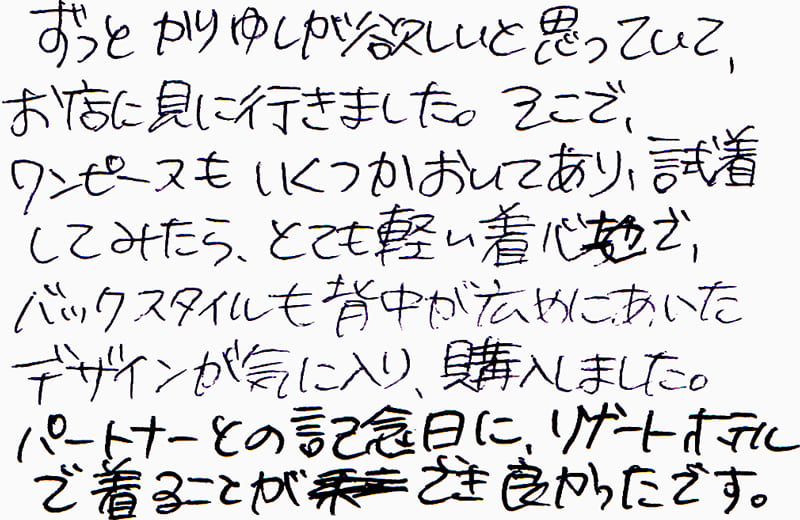 ずっとかりゆしが欲しいと思っていて、
お店に見に行きました。そこで、
ワンピースもいくつかおいてあり、試着
してみたら、とても軽い着心地で、
バックスタイルも背中が広めにあいた
デザインが気に入り、購入しました。
パートナーとの記念日に、リゾートホテル
で着ることができ良かったです。